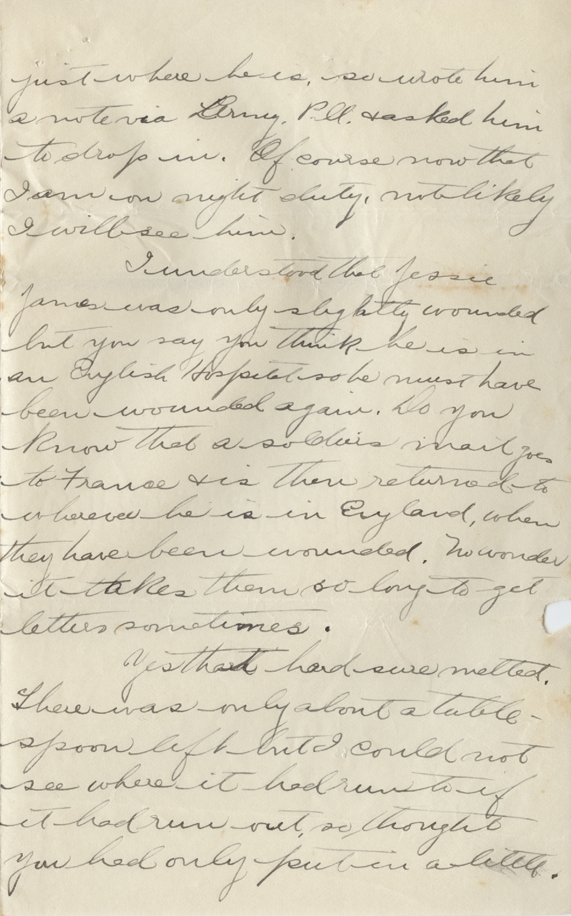 just where he is, so wrote him
a note via Army. P.O. & asked him
to drop in. Of course now that
I am on night duty, not likely
I will see him.
I understood that Jessie
James was only slightly wounded
but you say you think he is in
an English Hospital so he must have
been wounded again. Do you
know that a soldiers mail goes
to France & is then returned to
wherever he is in England, when
they have been wounded. No wonder
it takes them so long to get
letters sometimes.
Yes that lard sure melted.
There was only about a table-
spoon left but I could not
see where it had run to if
it had run out, so thought
you had only put in a little.